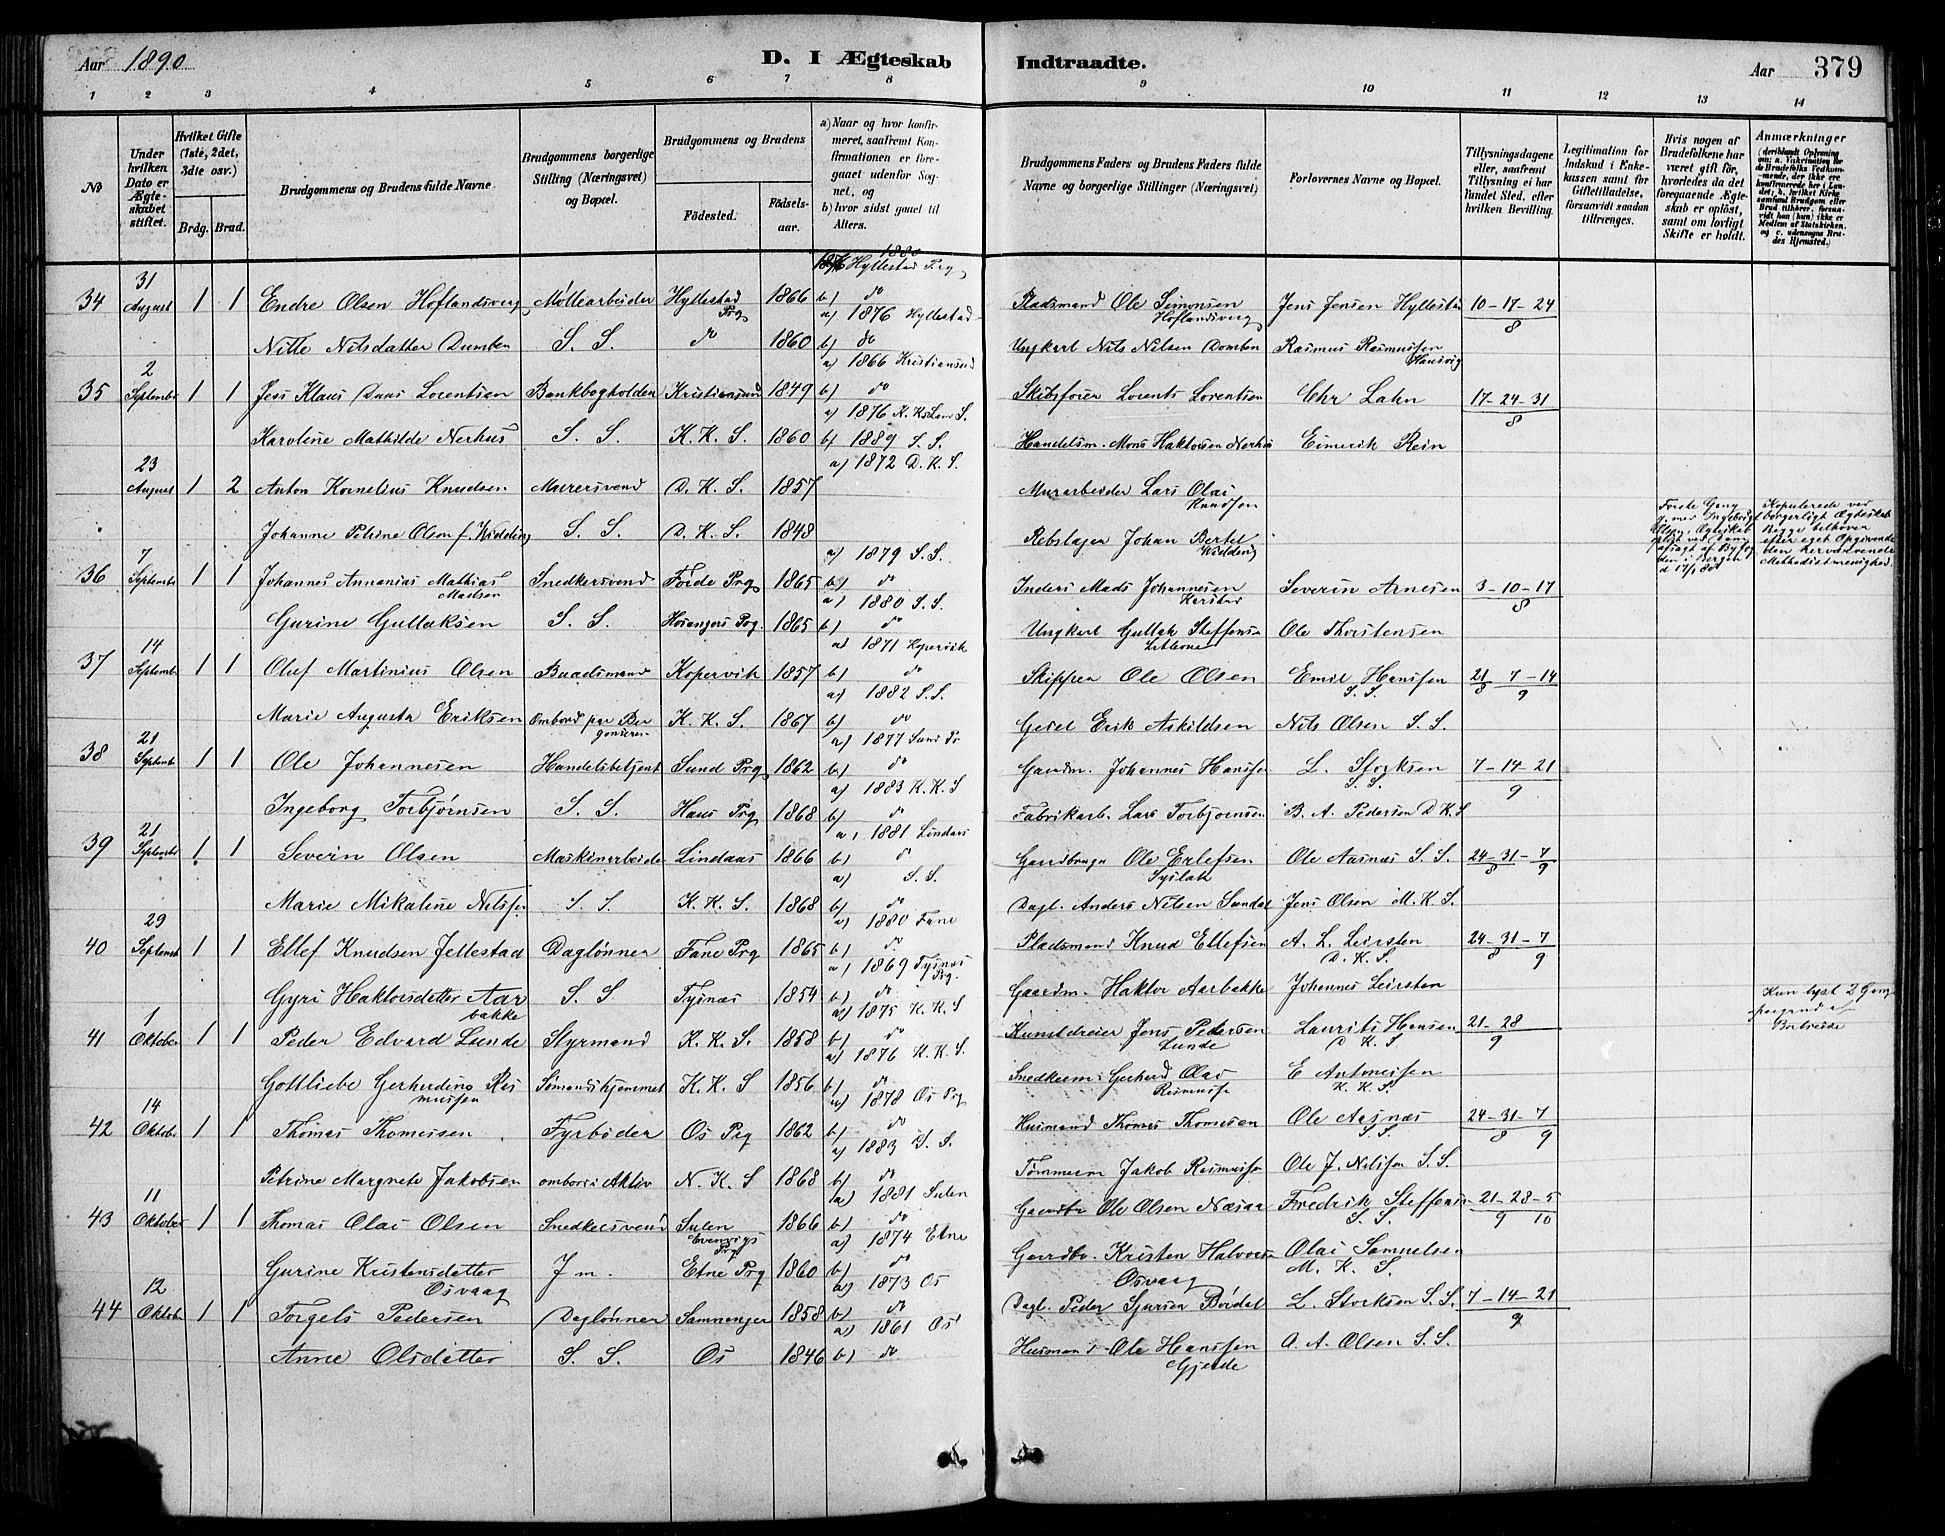 Aar 1890
D. I Ægteskab
Indtraadte.
Aar 379
1 2 3 4 5 6 7 8 9 10 11 12 13 14
No
Under hvilken Dato er Ægteskabet stiftet.
Hvilket Gifte (1ste, 2det, 3die osv.)
Brdg. Brud.
Brudgommens og Brudens fulde Navne.
Brudgommens borgerlige Stilling (Næringsvei) og Bopæl.
Brudgommens og Brudens
Fødested. Fødselsaar.
a) Naar og hvor konfirmeret, saafremt Konfirmationen er foregaaet udenfor Sognet, og
b) hvor sidst gaaet til Alters.
Brudgommens Faders og Brudens Faders fulde Navne og borgerlige Stillinger (Næringsvei)
Forlovernes Navne og Bopæl.
Tillysningsdagene eller, saafremt Tillysning ei har fundet Sted, efter hvilken Bevilling.
Legitimation for Indskud i Enkekassen samt for Giftetilladelse, forsaavidt saadan tiltrænges.
Hvis nogen af Brudefolkene har været gift før, hvorledes da det foregaaende Ægteskab er opløst, samt om lovligt Skifte er holdt.
Anmærkninger
1880
Hyllestad Prg
34 31 August 1 1 Endre Olsen Hoflandsverg Møllearbeider Hyllestad Prg 1866 b) do Pladsmand Ole Simonsen Hoflandsverg Jens Jensen Hyllestad 10-17-24/8
a) 1876 Hyllestad
Nille Nilsdatter Dumben S. S. do 1860 b) do Ungkarl Nils Nilsen Domben Rasmus Rasmussen
a) 1866 Kristiansund
35 2 Septembr 1 1 Jess Klaus Daus Lorentsen Bankbogholder Kristiansund 1849 b) do Skibsfører Lorents Lorentsen Chr Lahn 17-24-31/8
a) 1876 K. K.
Karoline Mathilde Nerhus S. S. K. K. S. 1860 b) 1889 S. S. Handelsm. Mons Haktorsen Nerhus Eimerik Rein
a) 1872 D. K. S.
23 August 1 2 Anton Kornelius Knudsen Murersvend D. K. S. 1857 Murarbeider Lars Olai Knudsen
Johanne Petrine Olsen f. Widding S. S. D. K. S. 1848 Rebslager Johan Bertel Widding
Første Gang
Kopulerede ved borgerligt Ægteskab Begge tilhører efter eget Opgivende den herværende Methodistmenighed.
a) 1879 S. S.
36 7 Septembr 1 1 Johannes Annanias Mathias Madsen Snedkersvend Førde Prg 1865 b) do Inders Mads Johannesen Karstad Severin Arnesen 3-10-17/8
a) 1880 S. S.
Gurine Gullaksen S. S. Hosangers Prg. 1865 b) do Ungkarl Gullak Steffensen Ole Thorstensen
a) 1871 Kopervik
37 14 Septembr 1 1 Oluf Martinius Olsen Baadsmand Kopervik 1857 b) do Skipper Ole Olsen Emil Hanssen S. S. 21/8 7-14/9
a) 1882 S. S.
Marie Augusta Eriksen Ombord paa Bergenseren K. K. S. 1867 b) do Erik Askildsen Nils Olsen S. S.
a) 1877 Sund Pr
38 21 Septembr 1 1 Ole Johannesen Handelsbetjent Sund Prg 1862 b) do Gaardm. Johannes Hanssen L. Storksen S. S. 7-14-21/9
a) 1883 K. K. S
Ingeborg Torbjørnsen S. S. Haus Prg 1868 b) do Fabrikarb. Lars Torbjørnsen B. A. Pedersen D K. S
a) 1881 Lindaas
39 21 Septembr 1 1 Severin Olsen Maskinarbeider Lindaas 1866 b) do Gaardbruger Ole Erlefsen Syslak Ole Aasnæs S. S. 24-31/8-7/9
a) S. S.
Marie Mikaline Nilssen S. S. K. K. S. 1868 b) do Dagl. Anders Nilsen Sandal Jens Olsen M. K. S.
a) 1880 Fane
40 29 Septemb 1 1 Ellef Knudsen Jellestad Daglønner Fane Prg 1865 b) do Pladsmand Knud Ellefsen A. L. Leirsten D. K. S. 24-31/8-7/9
a) 1869 Tysnæs Prg.
Gyri Haktorsdatter Aarbakke S. S Tysnæs 1854 b) do Gaardm. Haktor Aarbakke Johannes Leirsten
a) 1875 K. K. S
Kun lyst 2 Gange
41 1 Oktober 1 1 Peder Edvard Lunde Styrmand K. K. S. 1858 b) do Kunstdreier Jens Pedersen Lunde Laurits Hansen D K. S 21-28/9
a) 1876 K. K. S.
Gottliebe Gerhardine Rasmussen Sømandshjemmet K. K. S 1856 b) do Snedkerm. Gerhard Olai Rasmussen E Antonessen K. K. S.
a) 1878 Os Prg
42 14 Oktobr 1 1 Thomas Thomessen Fyrbøder Os Prg 1862 b) do Husmand Thomas Thomesen Ole Aasnæs S. S. 24-31/8-7/9
a) 1883 S. S.
Petrine Margrete Jakobsen ombord i Aktiv N. K. S 1868 b) do Tømmerm Jakob Rasmussen Ole J. Nilssen S. S.
a) 1881 Sulen
43 11 Oktober 1 1 Thomas Olai Olsen Snedkersvend Sulen Evenvigs Prg 1866 b) do Gaardbr Ole Olsen Næsaa Fredrik Steffensen S. S. 21-28/9-5/10
a) 1874 Etne
Gurine Kristensdatter Osvaag J m. Etne Prg 1860 b) do Gaardbr. Kristen Halvorsen Osvaag Olai Samuelsen M. K. S.
a) 1873 Os
44 12 Oktober 1 1 Torgels Pedersen Daglønner Samnanger 1858 b) do Dagl. Peder Sjursen Bordal L. Storksen S. S. 7-14-21/9
a) 1861 Os
Anne Olsdatter S. S. Os 1846 b) do Husmand Ole Hanssen Gjerde A. A. Olsen S. S.